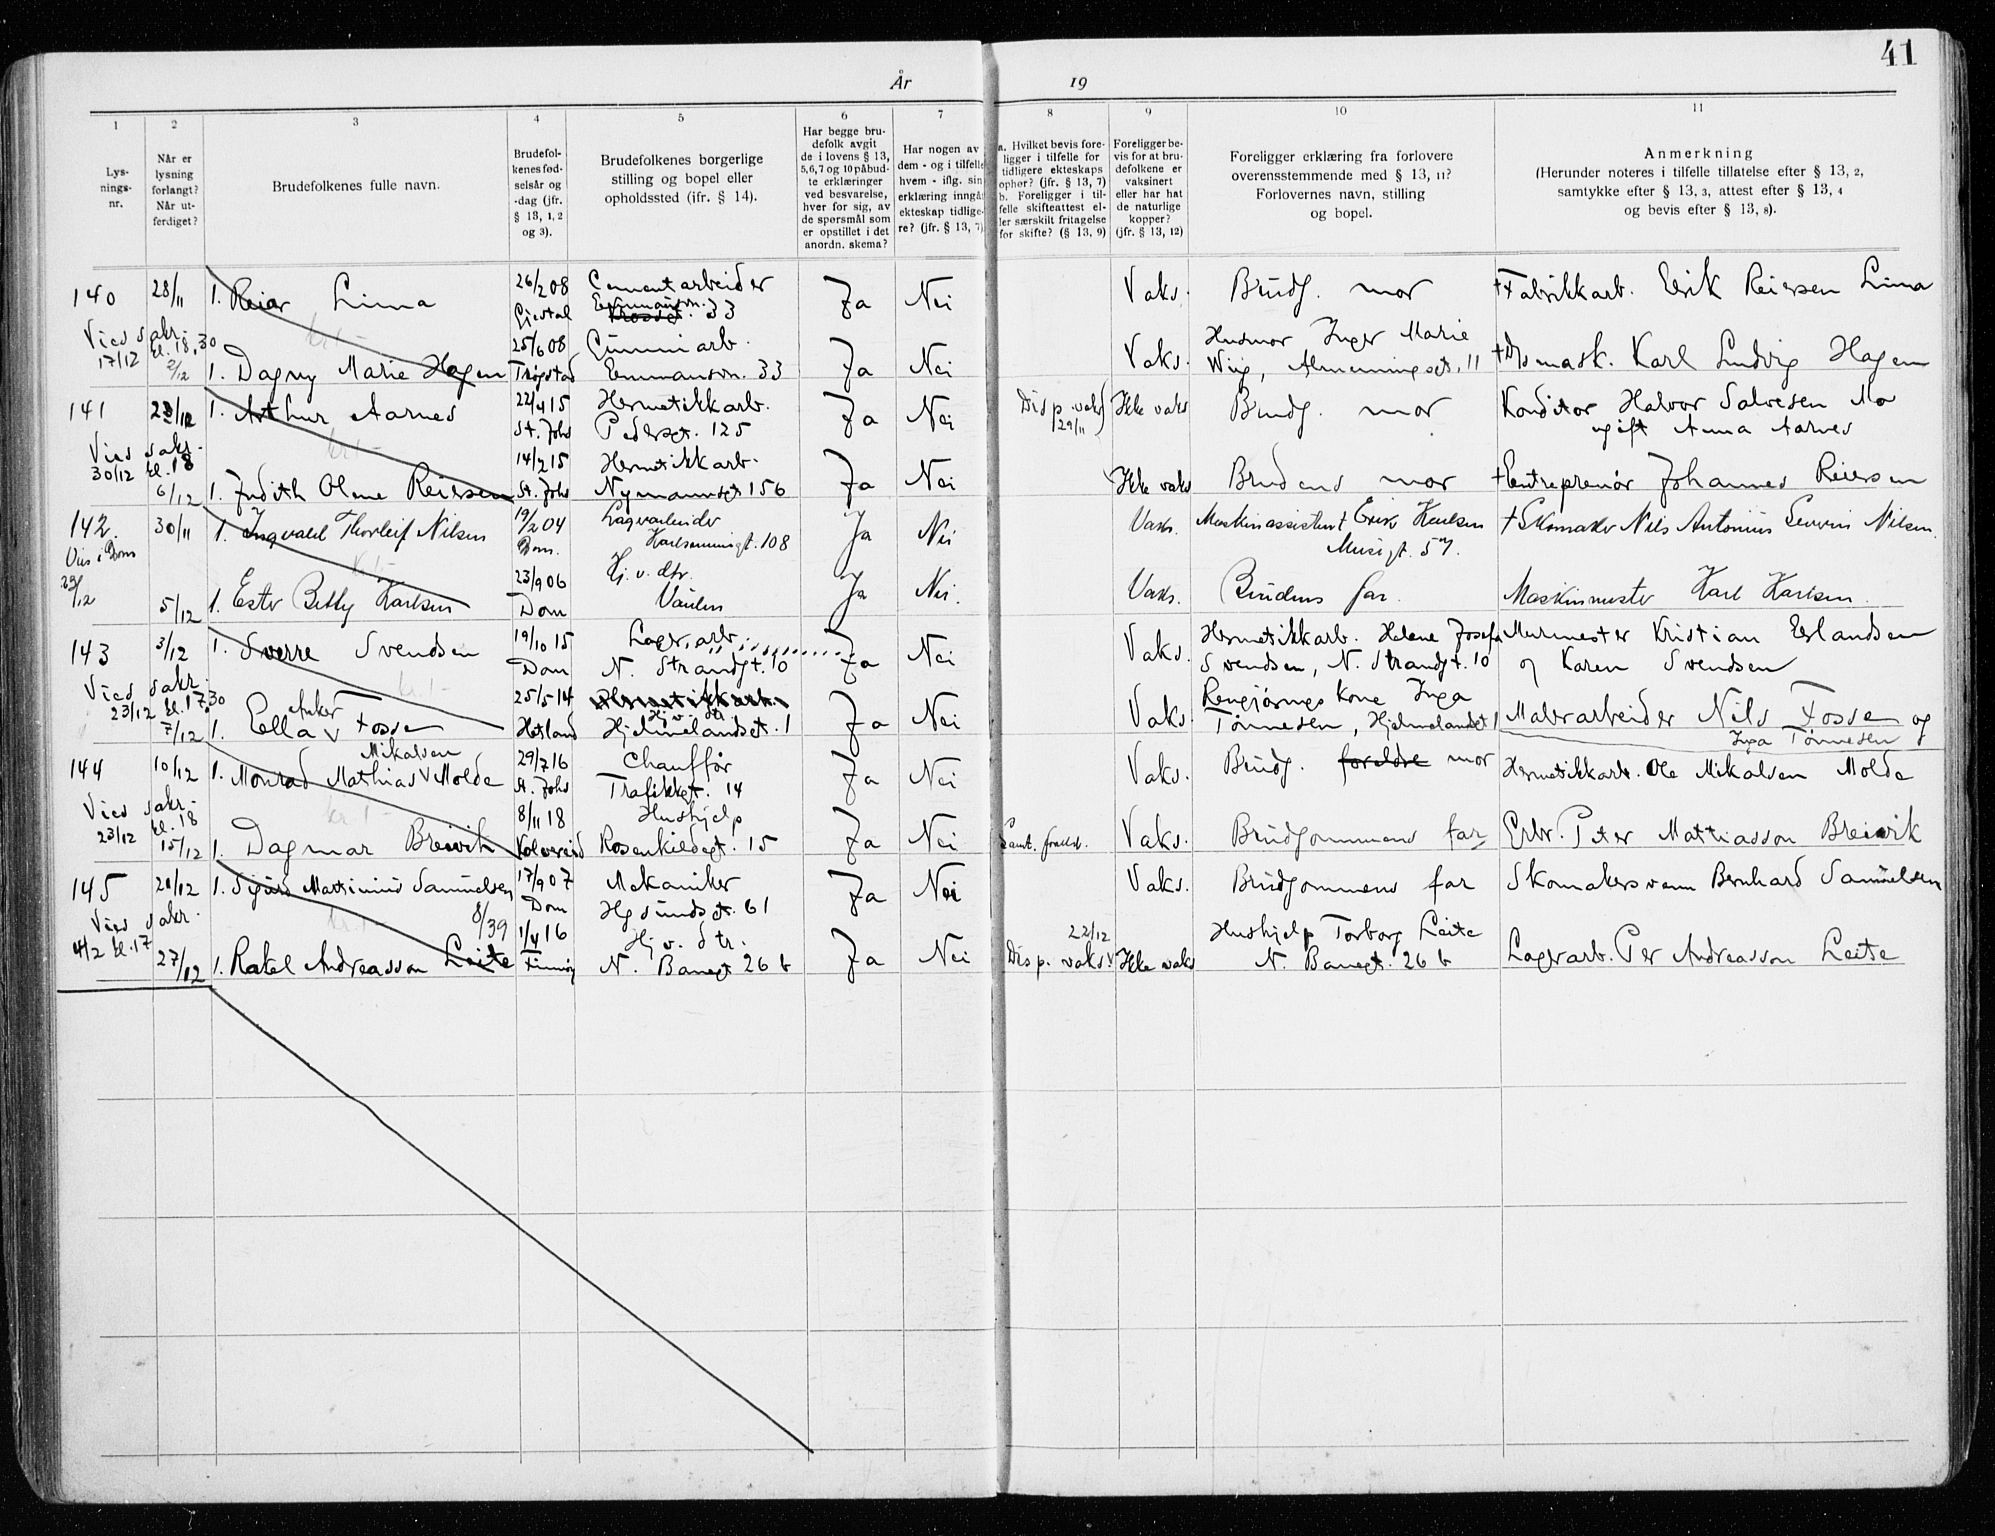 41
År 19
1 2 3 4 5 6 7 8 9 10 11
Lys-
nings-
nr.
Når er
lysning
forlangt?
Når ut-
ferdiget?
Brudefolkenes fulle navn.
Brudefol-
kenes fød-
selsår og
-dag (jfr.
§ 13, 1, 2
og 3).
Brudefolkenes borgerlige
stilling og bopel eller
opholdssted (ifr. § 14).
Har begge bru-
defolk avgit
de i lovens § 13,
5,6,7 og 10 påbud-
te erklæringer
ved besvarelse,
hver for sig, av
de spørsmål som
er opstillet i det
anordn. skema?
Har nogen av
dem - og i tilfelle
hvem - iflg. sin
erklæring inngå
ekteskap tidlige-
re? (jfr. § 13, 7)
a. Hvilket bevis fore-
ligger i tilfelle for
tidligere ekteskaps
ophør? (jfr. § 13, 7)
b. Foreligger i til-
felle skifteattest el-
ler særskilt fritagelse
for skifte? (§ 13, 9)
Foreligger be-
vis for at bru-
defolkene er
vaksinert
eller har hat
de naturlige
kopper?
(jfr. § 13, 12)
Foreligger erklæring fra forlovere
overensstemmende med § 13, 11?
Forlovernes navn, stilling
og bopel.
Anmerkning
(Herunder noteres i tilfelle tillatelse efter § 13, 2,
samtykke efter § 13, 3, attest efter § 13, 4
og bevis efter § 13, 8).
140 28/11 1. Reier Lima 26/2 08 Cementarbeider Ja Nei Vaks. Brudg. mor + Fabrikkarb. Eerik Reiersen Lima
Gjestal Emmausvn. 33
Vies sakr. kl. 18,30 25/6 08 Gummiarb. Husmor Inger Marie
17/12 2/12 1. Dagny Marie Hagen Trøgstad Emmausvn. 33 Ja Nei Vaks. Wiig, Almenningset. 11 + Dismask. Karl Ludvig Hagen
141 1. Arthur Aarnes 22/4 15 Hermetikkarb. Ja Nei Disp. vaks 29/11 Ikke vaks Brudg. mor Konditor Halvor Salvesen Mo
St. Johs Pedersgt. 125 ugift Anna Aarnes
Vies sakr. 14/2 15 Hermetikkarb.
30/12 kl. 18 6/12 1. Judith Olene Reiersen St. Johs Nymannsgt 156 Ja Nei Ikke vaks Brudens mor + Entreprenør Johannes Reiersen
142. 30/11 1. Ingvald Thorleif Nilsen 19/2 04 Lagerarbeider Ja Nei Vaks. Maskinassistent Erik Karlsen + Skomaker Nils Antonius Severin Nilsen.
Vies i Dom Dom. Karlsminnegt. 108 Musegt. 57.
23/12 23/9 06 Hj. v. str.
5/12 1. Ester Betty Karlsen Dom Vaulen Ja Nei. Vaks. Brudens far. Maskinmester Karl Karlsen.
143 3/12 1. Sverre Svendsen 19/10 15 Lagerarb. Ja Nei Vaks. Hermetikkarb. Helene Josefa Murmester Kristian Erlandsen
Dom N. Strandgt. 10 Svendsen, N. Strandgt. 10 og Karen Svendsen
Vies sakr. 25/5-14 Hermetikkarb. Rengjørings kone Inga
23/12 kl. 17,30 Anker Hj. v. str.
7/12 1. Ella v Fosse Hetland Hjelmelandsgt. 1 Ja Nei Vaks. Tønnesen, Hjelmelandsgt 1 Malerarbeider Nils Fosse og
Inga Tønnesen
144 10/12 Mikalsen
1. Monrad Mathias v Molde 29/7 16 Chauffør Ja Nei Vaks. Brudg. foreldre mor Hermetikkarb. Ole Mikalsen Molde
St. Johs Trafikkgt. 14
Vies sakr. 8/11 18 Hushjelp
23/12 kl. 18 15/12 1. Dagmar Breivik Kolvereid Rosenkildegt. 15 Ja Nei Vaks. Brudgommens far Erbr. Peter Mattiasson Breivik
145 20/12 1. Sigurd Martinius Samuelsen 17/9 07 Mekaniker Ja Nei Vaks. Brudgommens far Skomakersvenn Bernhard Samuelsen
8/39 Dom Hgsundsgt. 61
Vies sakr. 1/4 16 Hj. v. str. 22/12 Hushjelp Torborg Leite
4/2 kl. 17 27/12 1. Rakel Andreasson Leite Finnøy N. Banegt 26 b Ja Nei Disp. vaks v Ikke vaks N. Banegt. 26 b Lagerarb. Per Andreasson Leite